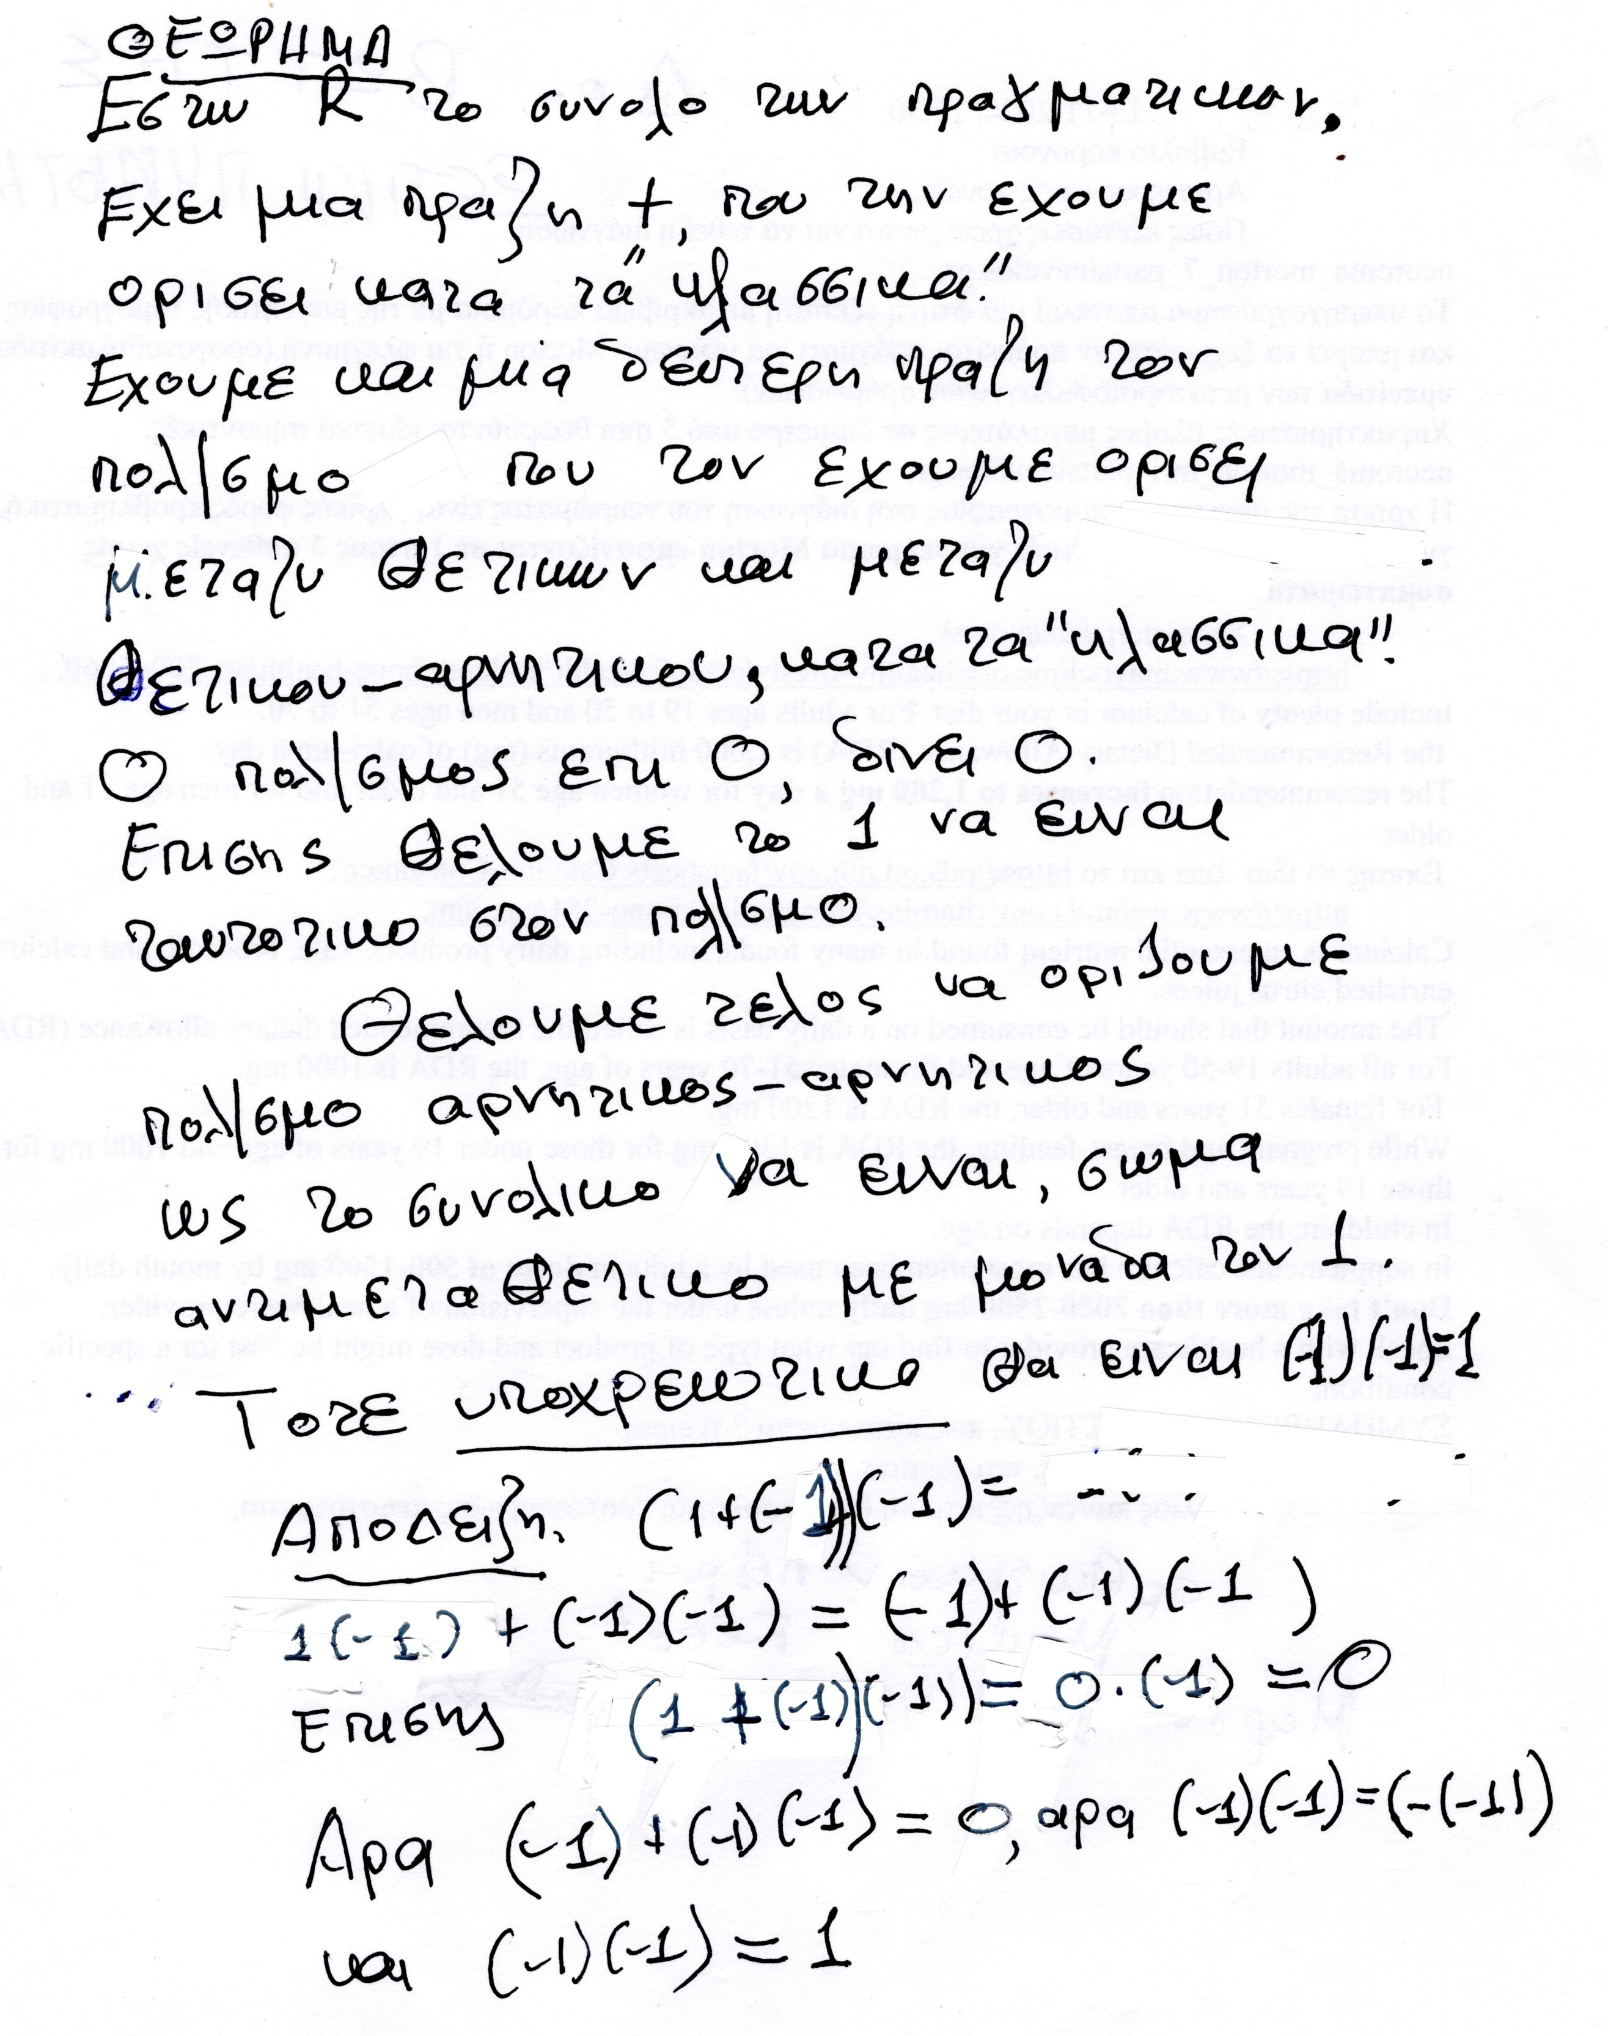 ΘΕΩΡΗΜΑ
Εστω R το συνολο των πραγματικων.
Εχει μια πραξη +, που την εχουμε
ορισει κατα τα "κλασσικα".
Εχουμε και μια δευτερη πραξη τον
πολ/σμο που τον εχουμε ορισει
μεταξυ θετικων και μεταξυ
θετικου-αρνητικου, κατα τα "κλασσικα".
Ο πολ/σμος επι 0, δινει 0.
Επισης θελουμε το 1 να ειναι
ταυτοτικο στον πολ/σμο.
Θελουμε τελος να οριζουμε
πολ/σμο αρνητικος-αρνητικος
ως το συνολικο να ειναι, σωμα
αντιμεταθετικο με μοναδα τον 1.
Τοτε υποχρεωτικα θα ειναι (-1)(-1)=1
Αποδειξη. (1+(-1))(-1)=
1(-1) + (-1)(-1) = (-1)+(-1)(-1)
Επισης (1+(-1)(-1))= 0.(-1) =0
Αρα (-1)+(-1)(-1) = 0, αρα (-1)(-1)=(-(-1))
και (-1)(-1) = 1